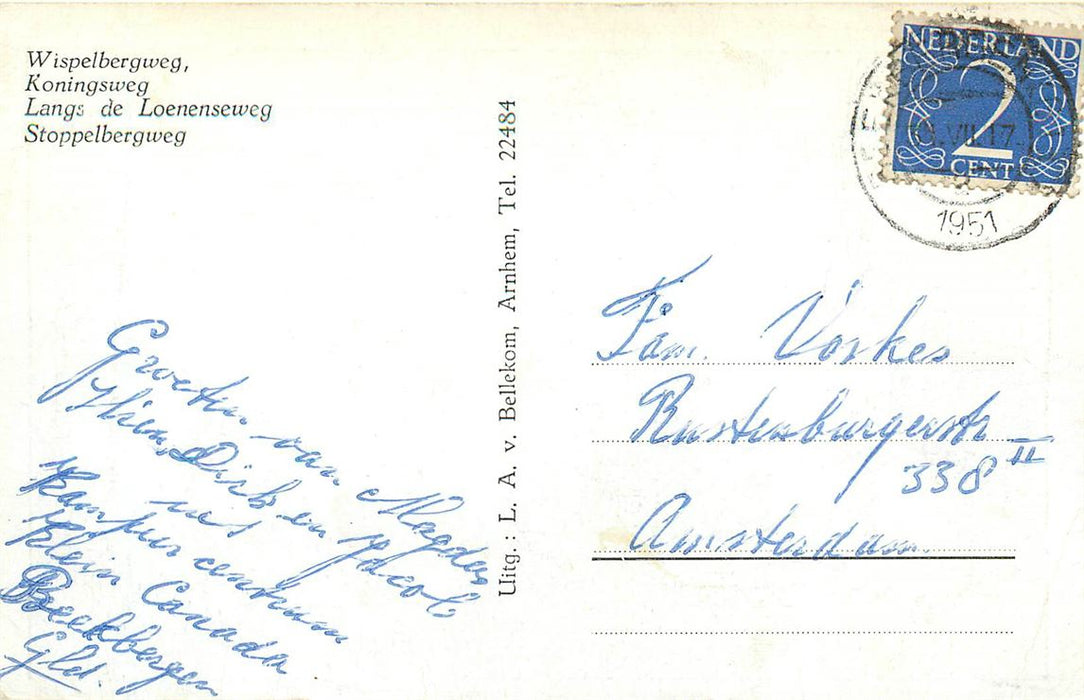 Wispelbergweg,
Koningsweg
Langs de Loenenseweg
Stoppelbergweg
Uitg.: L. A. v. Bellekom, Arnhem, Tel. 22484
NEDERLAND
2
CENT
VII.17
1951
Groeten van Magda
Dirk en Jacob
Kampeer centrum
Klein Canada
Beekbergen
Gld.
Fam. Vorkes
Rustenburgerstr
338 II
Amsterdam